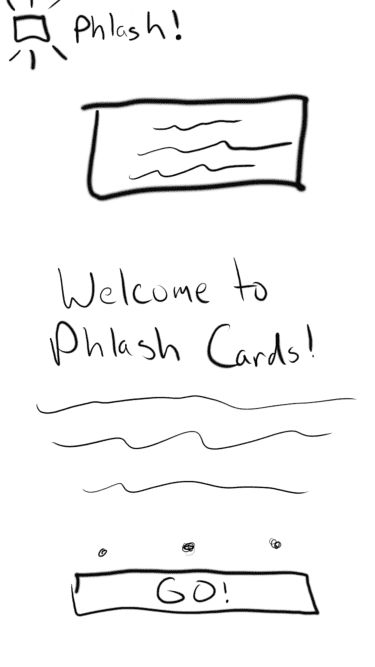 Phlash!
Welcome to
Phlash Cards!
GO!